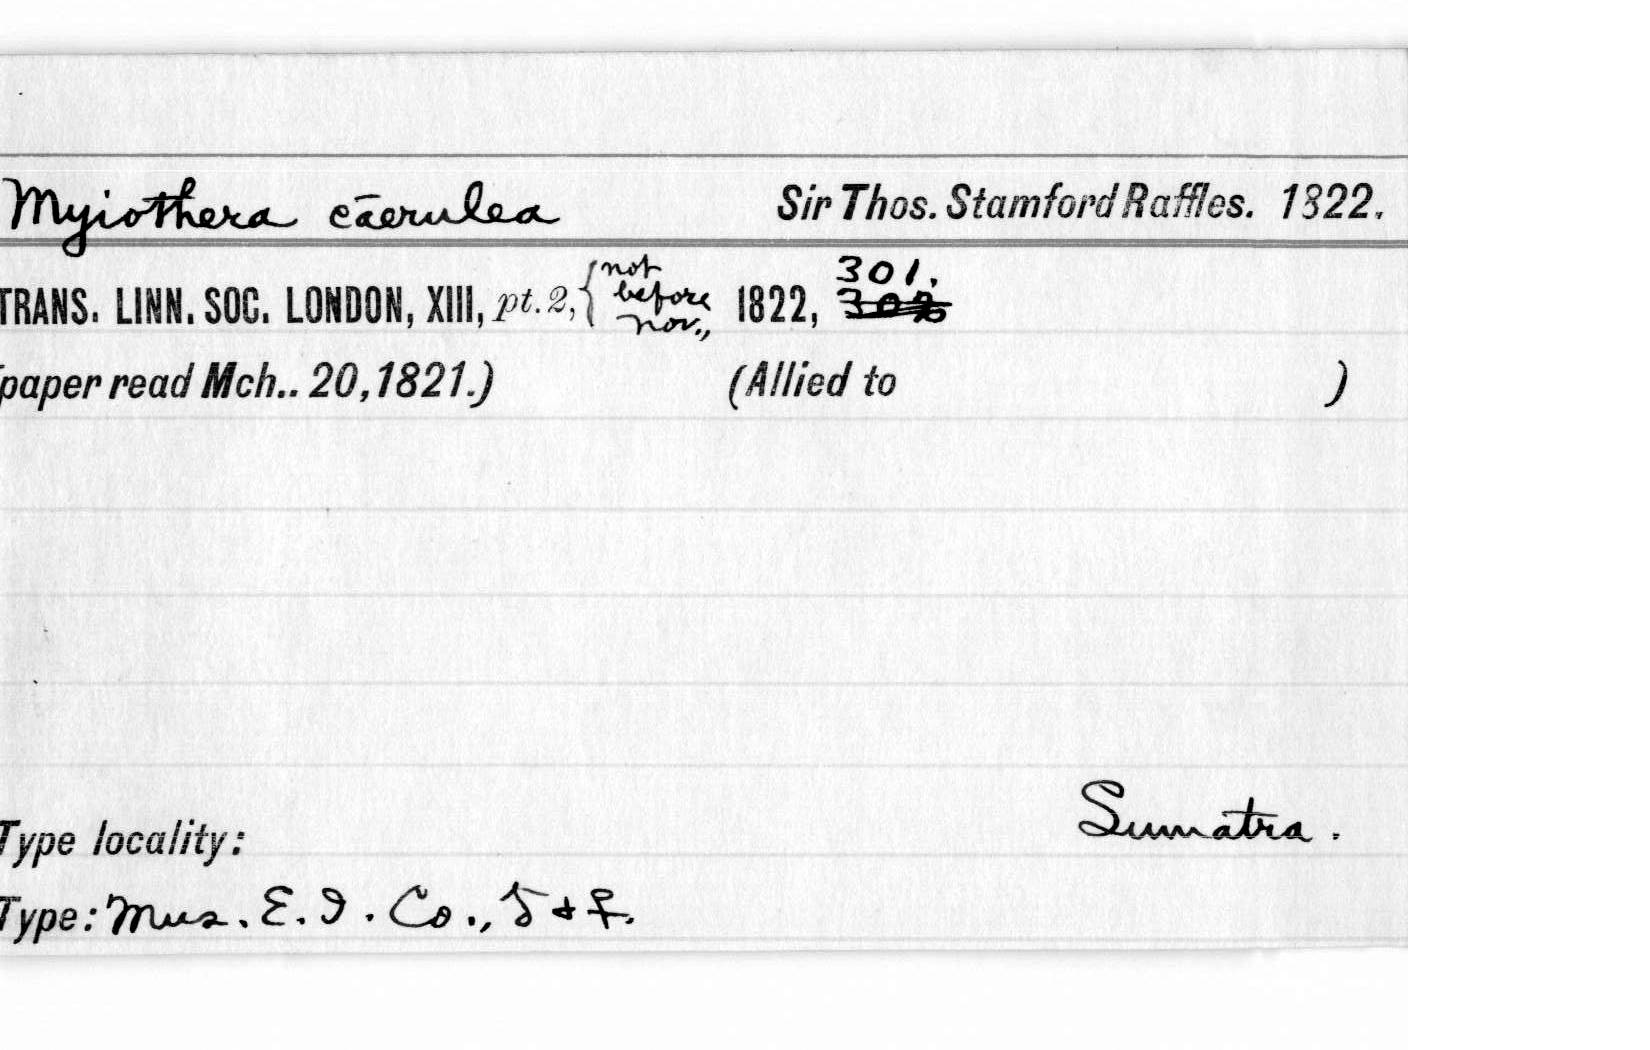 Myiothera cāerulea Sir Thos. Stamford Raffles. 1822.
TRANS. LINN. SOC. LONDON, XIII, pt. 2, { not before nov., 1822, 301.
paper read Mch.. 20, 1821.) (Allied to )
Type locality: Sumatra.
Type: Mus. E. I. Co., ♂ & ♀.